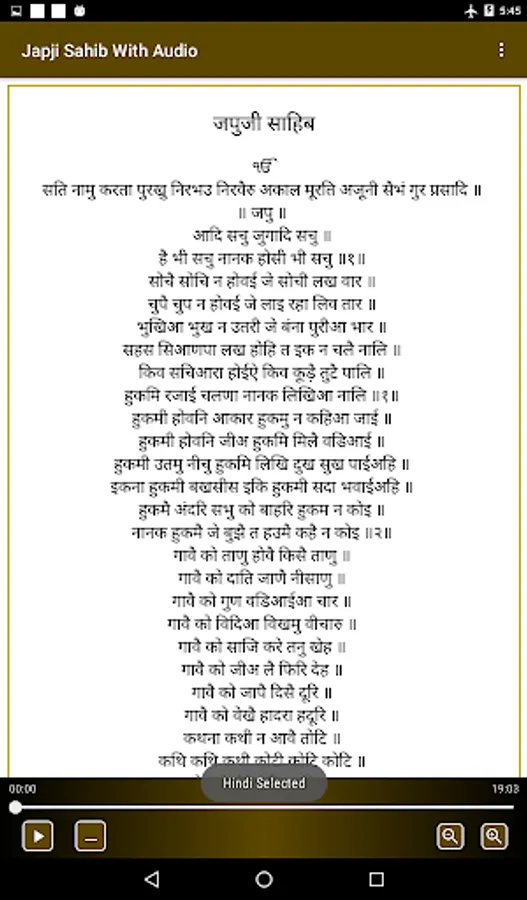 5:45
Japji Sahib With Audio
जपुजी साहिब
ੴ
सति नामु करता पुरखु निरभउ निरवैरु अकाल मूरति अजूनी सैभं गुर प्रसादि ॥
॥ जपु ॥
आदि सचु जुगादि सचु ॥
है भी सचु नानक होसी भी सचु ॥१॥
सोचै सोचि न होवई जे सोची लख वार ॥
चुपै चुप न होवई जे लाइ रहा लिव तार ॥
भुखिआ भुख न उतरी जे बंना पुरीआ भार ॥
सहस सिआणपा लख होहि त इक न चलै नालि ॥
किव सचिआरा होईऐ किव कूड़ै तुटै पालि ॥
हुकमि रजाई चलणा नानक लिखिआ नालि ॥१॥
हुकमी होवनि आकार हुकमु न कहिआ जाई ॥
हुकमी होवनि जीअ हुकमि मिलै वडिआई ॥
हुकमी उतमु नीचु हुकमि लिखि दुख सुख पाईअहि ॥
इकना हुकमी बखसीस इकि हुकमी सदा भवाईअहि ॥
हुकमै अंदरि सभु को बाहरि हुकम न कोइ ॥
नानक हुकमै जे बुझै त हउमै कहै न कोइ ॥२॥
गावै को ताणु होवै किसै ताणु ॥
गावै को दाति जाणै नीसाणु ॥
गावै को गुण वडिआईआ चार ॥
गावै को विदिआ विखमु वीचारु ॥
गावै को साजि करे तनु खेह ॥
गावै को जीअ लै फिरि देह ॥
गावै को जापै दिसै दूरि ॥
गावै को वेखै हादरा हदूरि ॥
कथना कथी न आवै तोटि ॥
कथि कथि कथी कोटी कोटि कोटि ॥
Hindi Selected
00:00
19:03